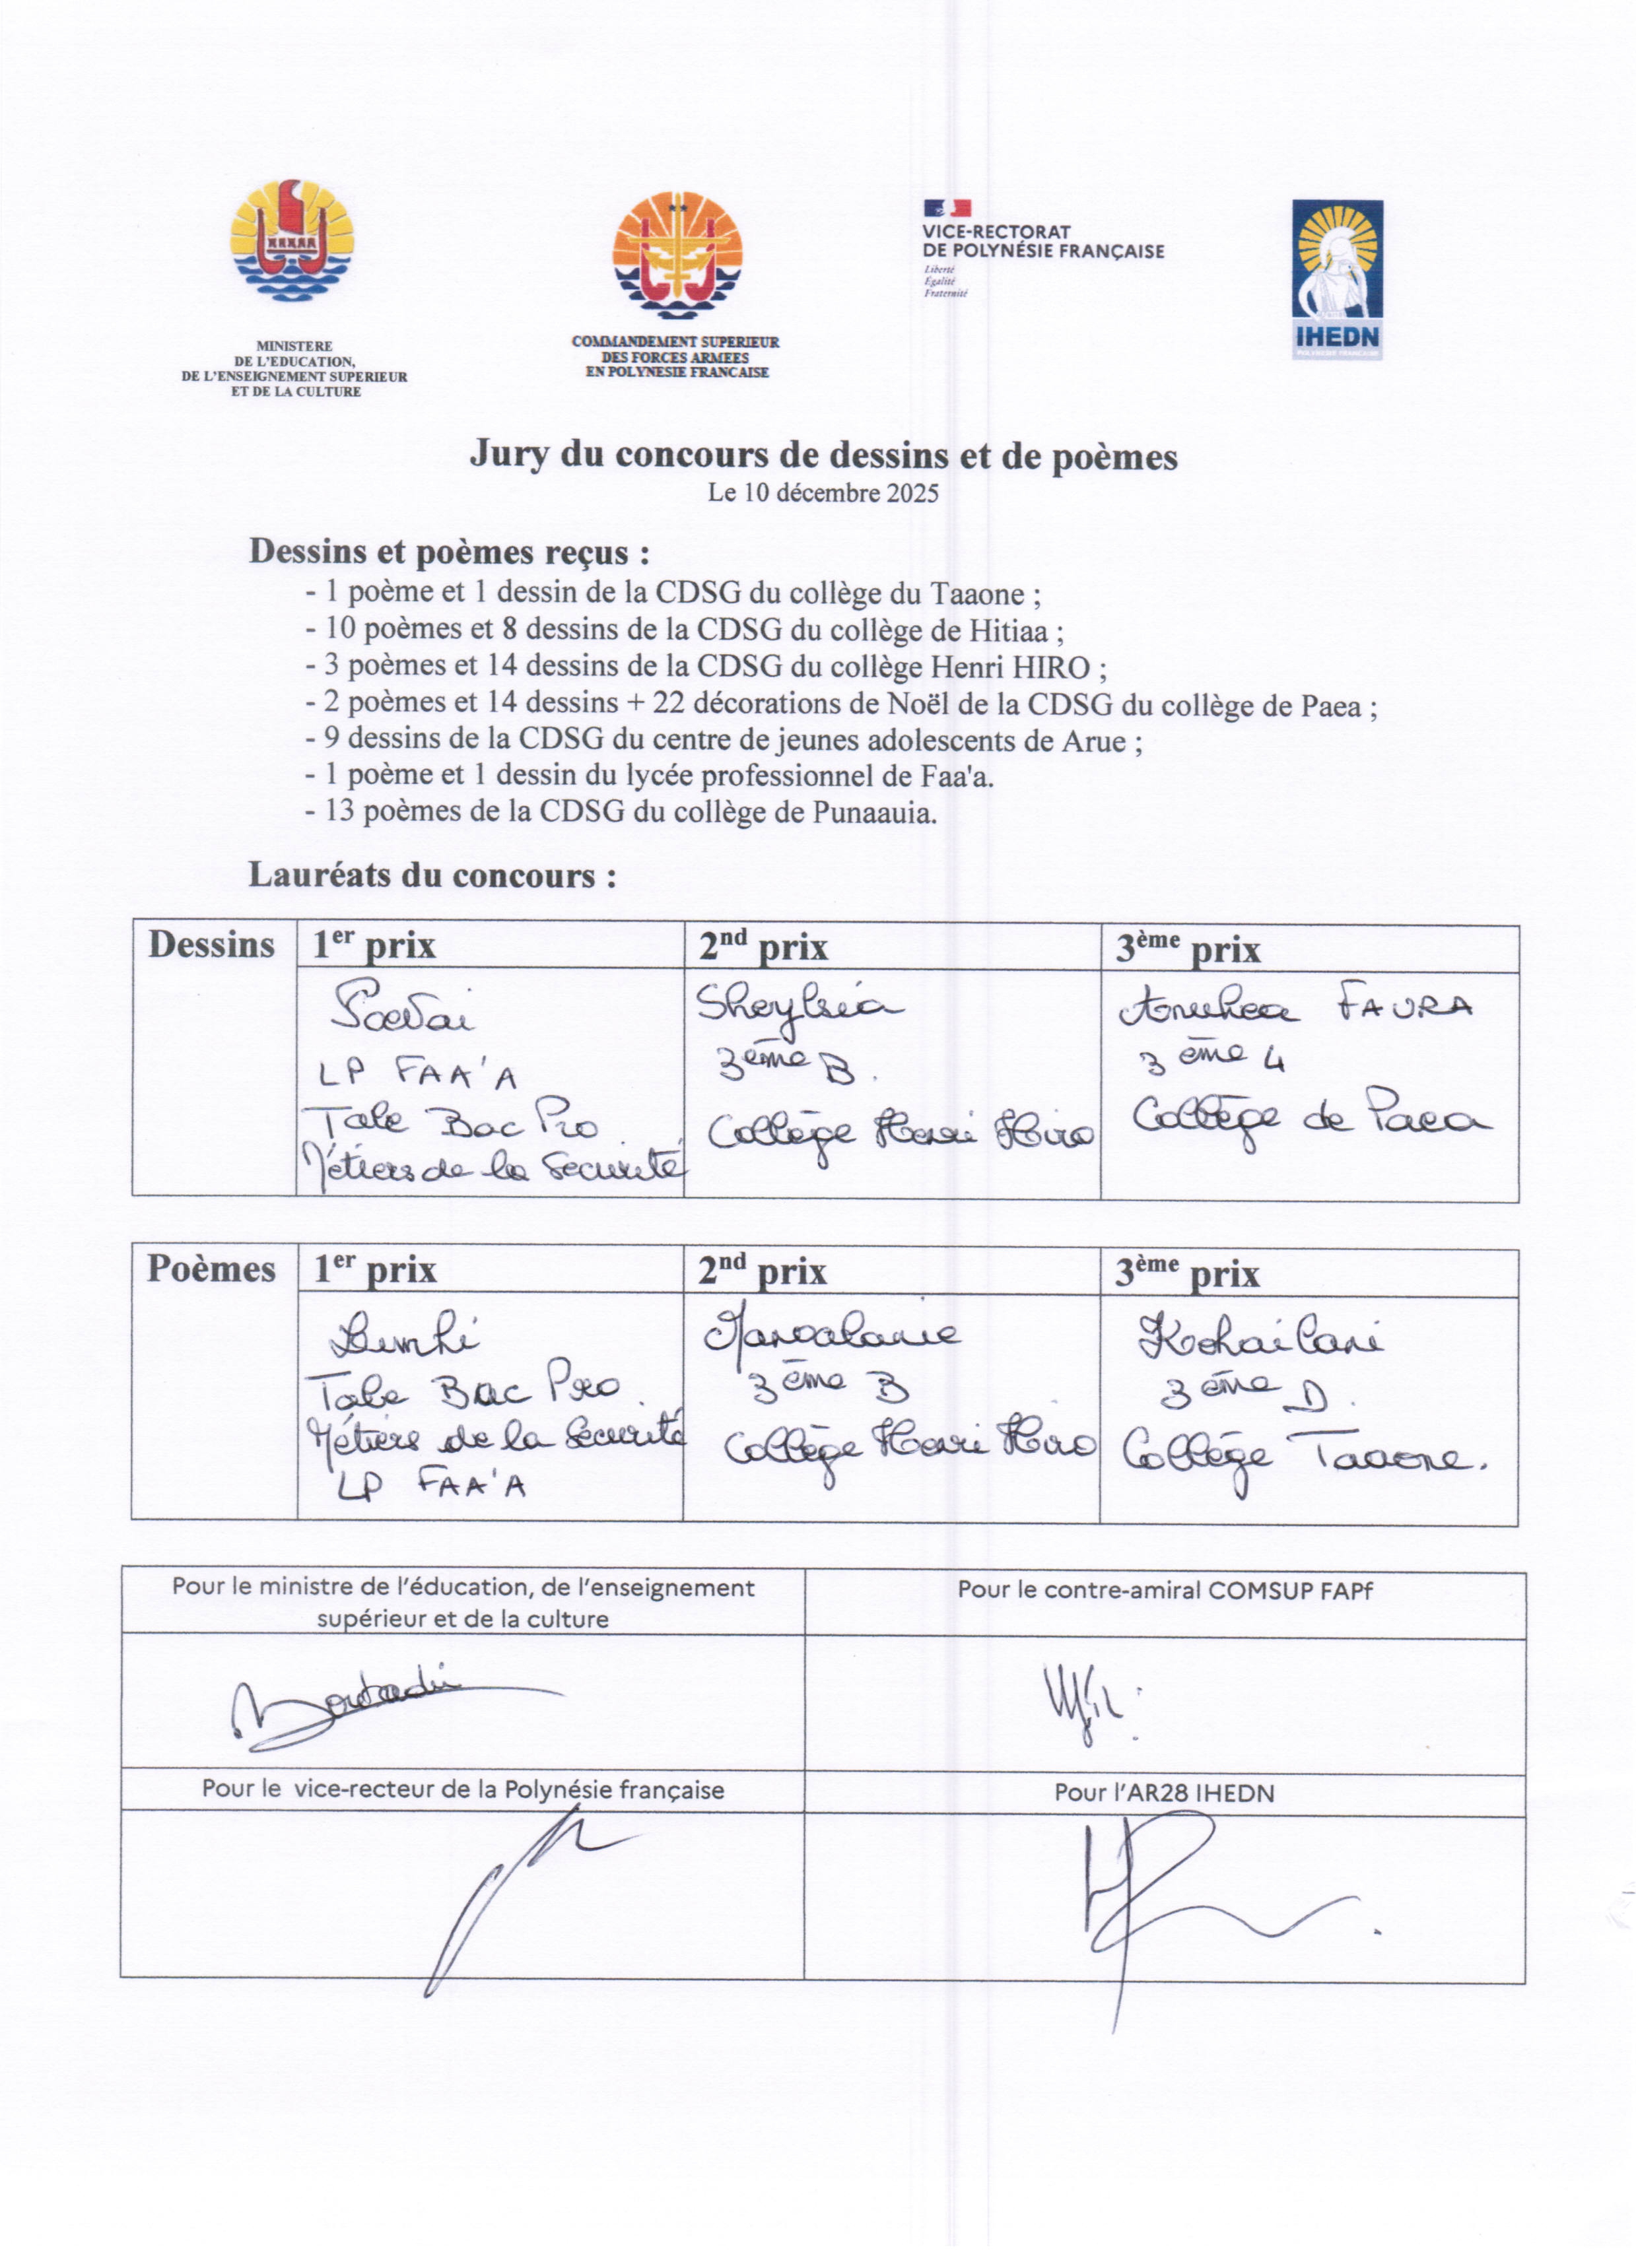 MINISTERE
DE L'EDUCATION,
DE L'ENSEIGNEMENT SUPERIEUR
ET DE LA CULTURE
COMMANDEMENT SUPERIEUR
DES FORCES ARMEES
EN POLYNESIE FRANCAISE
VICE-RECTORAT
DE POLYNÉSIE FRANÇAISE
Liberté
Égalité
Fraternité
IHEDN
POLYNESIE FRANCAISE
Jury du concours de dessins et de poèmes
Le 10 décembre 2025
Dessins et poèmes reçus :
- 1 poème et 1 dessin de la CDSG du collège du Taaone ;
- 10 poèmes et 8 dessins de la CDSG du collège de Hitiaa ;
- 3 poèmes et 14 dessins de la CDSG du collège Henri HIRO ;
- 2 poèmes et 14 dessins + 22 décorations de Noël de la CDSG du collège de Paea ;
- 9 dessins de la CDSG du centre de jeunes adolescents de Arue ;
- 1 poème et 1 dessin du lycée professionnel de Faa'a.
- 13 poèmes de la CDSG du collège de Punaauia.
Lauréats du concours :
Dessins 1er prix 2nd prix 3ème prix
LP FAA'A
Tale Bac Pro
Métiers de la Sécurité
3ème B.
Collège Henri Hiro
Anuhea FAURA
3ème 4
Collège de Paea
Poèmes 1er prix 2nd prix 3ème prix
Tale Bac Pro.
Métiers de la Sécurité
LP FAA'A
3ème B
Collège Henri Hiro
Kohailani
3ème D.
Collège Taaone.
Pour le ministre de l'éducation, de l'enseignement
supérieur et de la culture
Pour le contre-amiral COMSUP FAPf
Pour le vice-recteur de la Polynésie française
Pour l'AR28 IHEDN